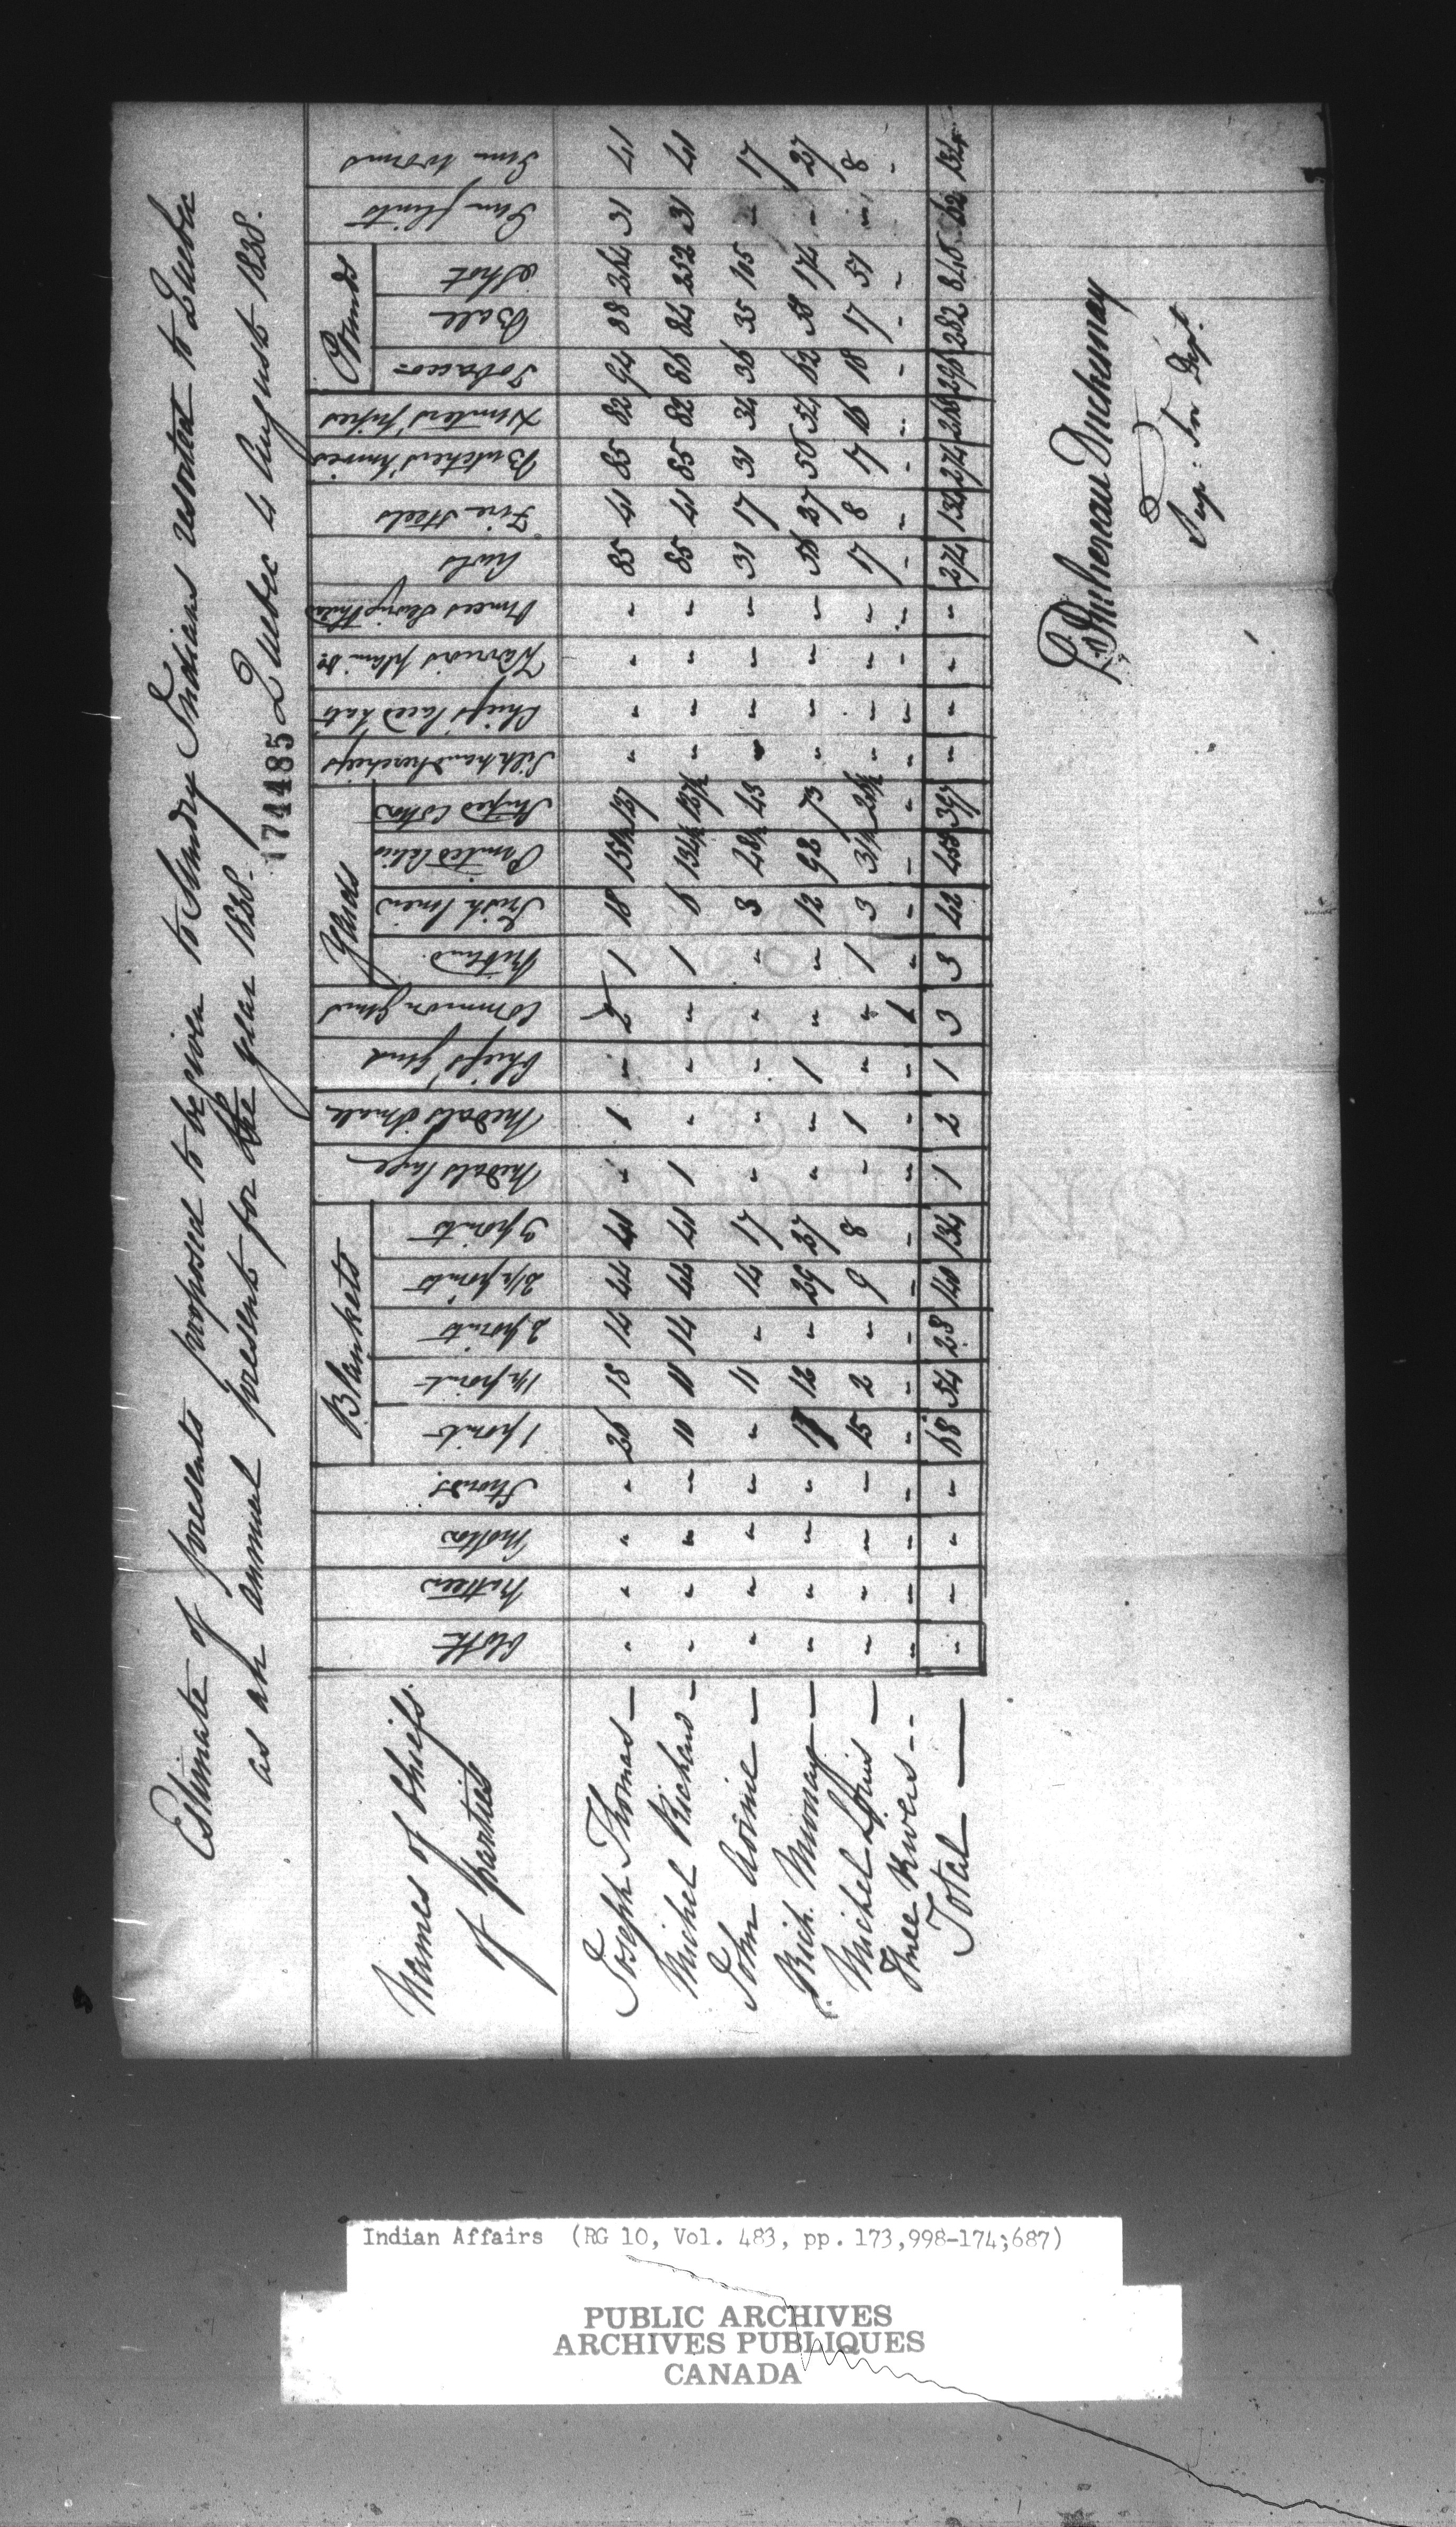 Estimate of presents proposed to be given to Sundry Indians resorted to Quebec
as an annual present for the year 1838. Quebec 4 August 1838.
174485
Names of Chiefs of parties | Cloth | Ratteen | Molton | Strouds | Blankets 1 point | 1½ point | 2 points | 2½ points | 3 points | Medals large | Medals Small | Chiefs' Guns | Common Guns | Yards Ribband | Irish linen | Printed Calico | Striped Cotton | Silk handkerchiefs | Chiefs laced hats | Warriors plain do | Ounces Sewing thread | Awls | Fire Steels | Butchers' knives | Hunters' pipes | Pounds Tobacco | Ball | Shot | Gun flints | Gun Worms
Joseph Thomas — | " | " | " | " | 26 | 18 | 14 | 44 | 41 | " | 1 | " | 2 | 1 | 18 | 151½ | 137 | " | " | " | " | 85 | 41 | 85 | 82 | 94 | 88 | 264 | 31 | 41
Michel Richard — | " | " | " | " | 10 | 11 | 14 | 44 | 41 | 1 | " | " | " | 1 | 6 | 134½ | 137½ | " | " | " | " | 85 | 41 | 85 | 82 | 86 | 84 | 252 | 31 | 41
John — | " | " | " | " | " | 11 | " | 14 | 17 | " | " | " | " | " | 3 | 48½ | 43 | " | " | " | " | 31 | 17 | 31 | 34 | 36 | 35 | 105 | " | 17
Rich. Murray — | " | " | " | " | 17 | 12 | " | 29 | 37 | " | " | 1 | " | " | 12 | 98 | 73 | " | " | " | " | 56 | 27 | 56 | 54 | 62 | 58 | 174 | " | 27
Michel Louis — | " | " | " | " | 15 | 2 | " | 9 | 8 | " | 1 | " | " | 1 | 3 | 31½ | 26½ | " | " | " | " | 17 | 8 | 17 | 16 | 18 | 17 | 51 | " | 8
Three Rivers -- | " | " | " | " | " | " | " | " | " | " | " | " | 1 | " | " | " | " | " | " | " | " | " | " | " | " | " | " | " | " | "
Total — | " | " | " | " | 68 | 54 | 28 | 140 | 134 | 1 | 2 | 1 | 3 | 3 | 42 | 397 | " | " | " | " | 274 | 134 | 274 | 268 | 296 | 282 | 846 | 62 | 134
Duchesnay
Sup: In Dept.
Indian Affairs (RG 10, Vol. 483, pp. 173,998-174;687)
PUBLIC ARCHIVES
ARCHIVES PUBLIQUES
CANADA